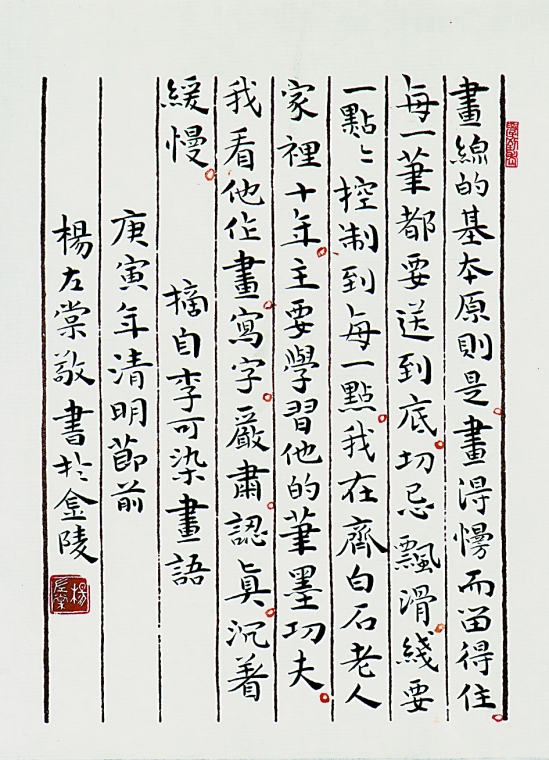 畫線的基本原則是。畫得慢而留得住。
每一筆都要送到底。切忌飄滑。綫要
一點々控制到每一點。我在齊白石老人
家裡十年。主要學習他的筆墨功夫。
我看他作畫。寫字。嚴肅。認真。沉着
緩慢。 摘自李可染畫語
庚寅年清明節前
楊左棠敬書於金陵
楊左棠